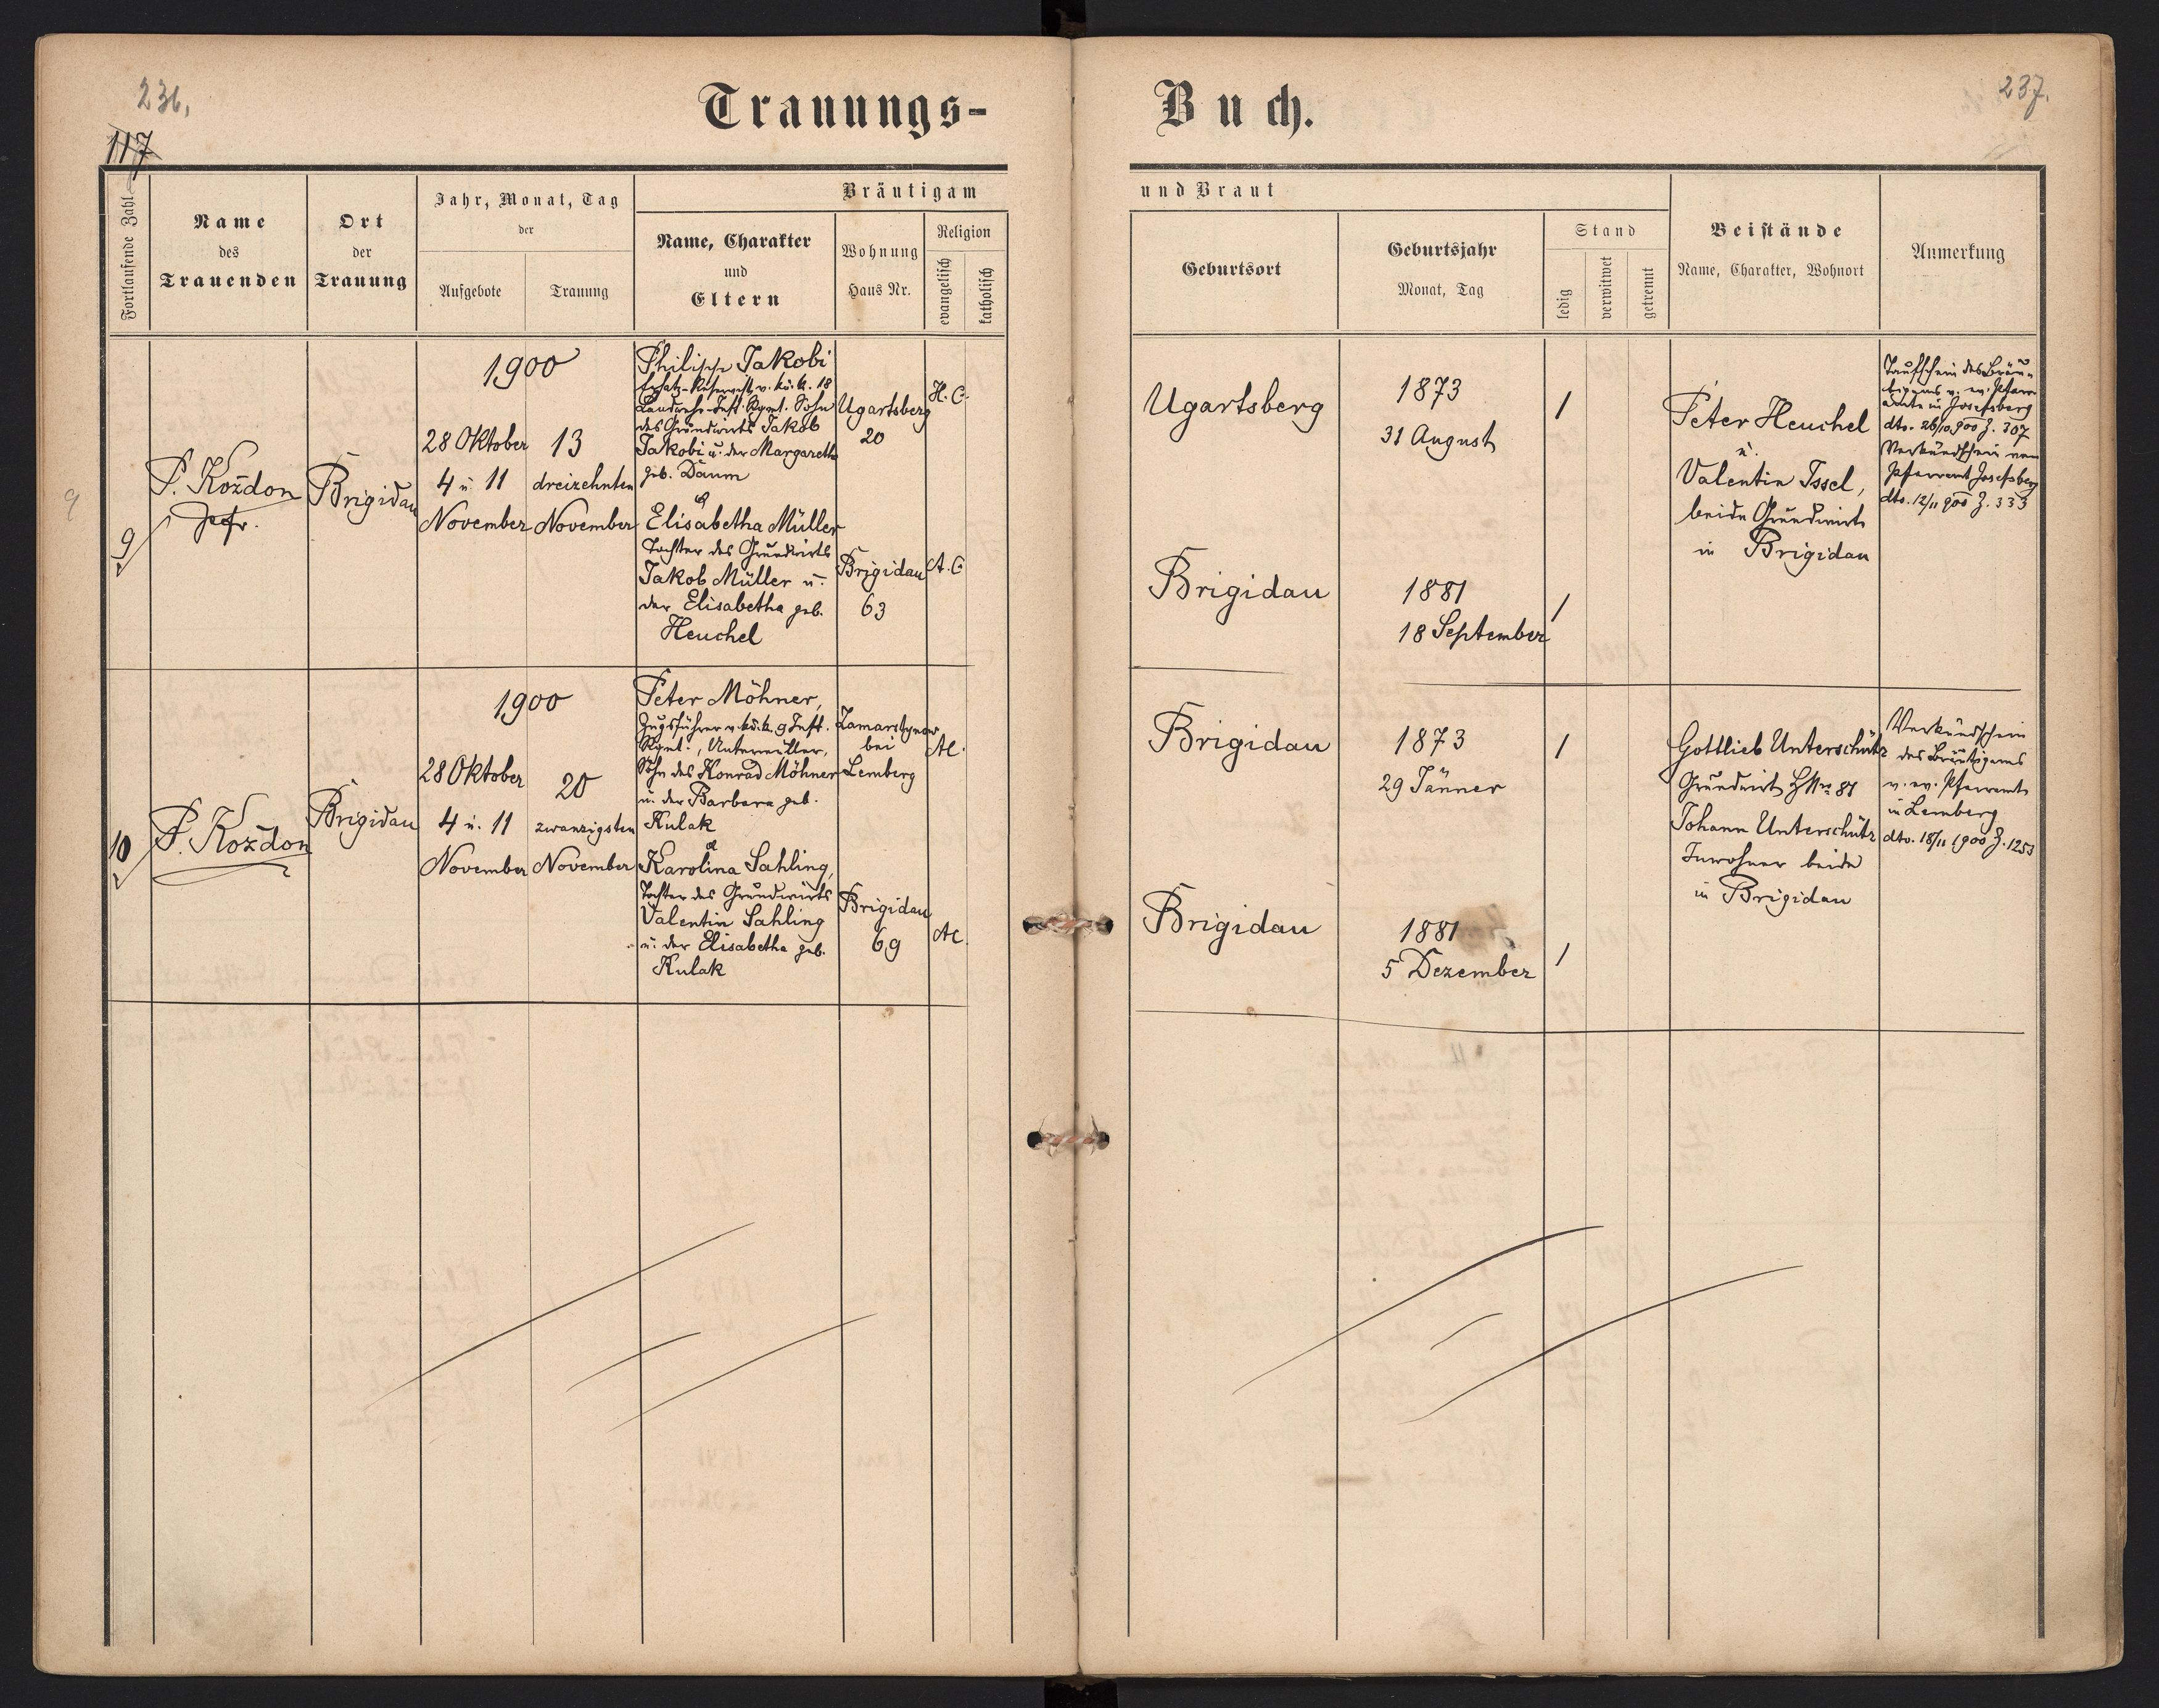 236.
117
Trauungs-
Fortlaufende Zahl
Name
des
Trauenden
Ort
der
Trauung
Jahr, Monat, Tag
der
Aufgebote
Trauung
Bräutigam
Name, Charakter
und
Eltern
Wohnung
Haus Nr.
Religion
evangelisch
katholisch
9
9
P. Koždon
Pfr.
Brigidau
1900
28 Oktober
4 u. 11
November
13
dreizehnten
November
Philipp Jakobi
Ersatz-Reservist v. k.u.k. 18
Landwehr-Inft. Rgmt. Sohn
des Grundwirts Jakob
Jakobi u. der Margaretha
geb. Daum
Ugartsberg
20
H. C.
Elisabetha Müller
Tochter des Grundwirts
Jakob Müller u.
der Elisabetha geb.
Heuchel
Brigidau
63
A. C
10
P. Koždon
Brigidau
1900
28 Oktober
4 u. 11
November
20
zwanzigsten
November
Peter Möhner,
Zugsführer v. k.u.k. 9 Inft.
Rgmt., Untermüller,
Sohn des Konrad Möhner
u. der Barbara geb.
Kulak
Zamarstynow
bei
Lemberg
AC.
Karolina Sahling,
Tochter des Grundwirts
Valentin Sahling
u. der Elisabetha geb.
Kulak
Brigidau
69
AC.
237.
Buch.
und Braut
Geburtsort
Geburtsjahr
Monat, Tag
Stand
ledig
verwitwet
getrennt
Beistände
Name, Charakter, Wohnort
Anmerkung
Ugartsberg
1873
31 August
/
Peter Heuchel
u.
Valentin Issel,
beide Grundwirte
in Brigidau
Taufschein des Bräu-
tigams v. ev. Pfarr-
amte in Josefsberg
dto. 26/10 900 Z. 307
Verkündschein vom
Pfarramt Josefsberg
dto. 12/11 900 Z. 333
Brigidau
1881
18 September
/
Brigidau
1873
29 Jänner
/
Gottlieb Unterschütz
Grundwirt HNro 81
Johann Unterschütz
Inwohner beide
in Brigidau
Verkündschein
des Bräutigams
v. ev. Pfarramte
in Lemberg
dto. 18/11 1900 Z. 1253
Brigidau
1881
5 Dezember
/